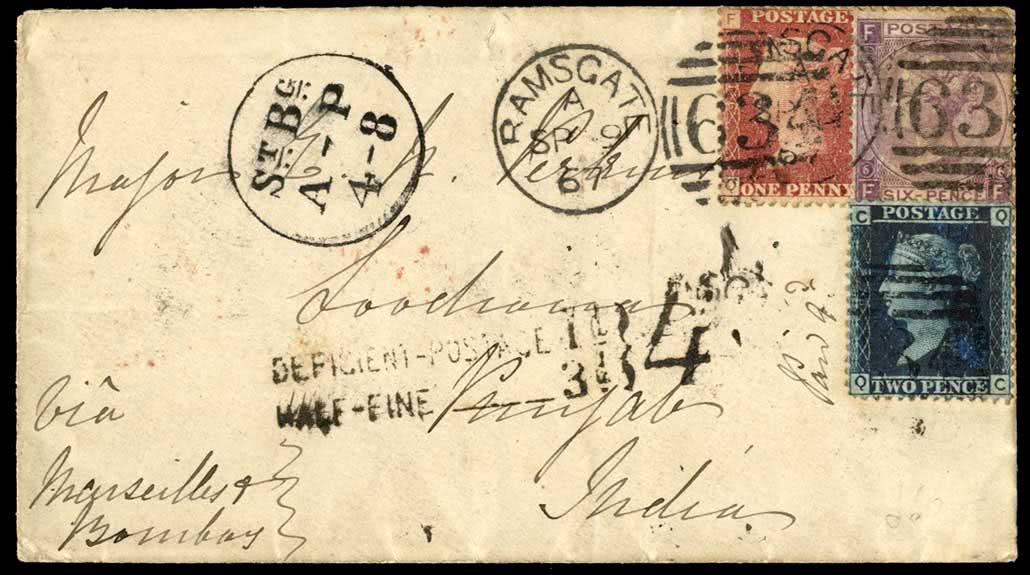 POSTAGE
F
ONE PENNY
Q
POSTAGE
F
SIX-PENCE
6
6
F
F
C
POSTAGE
Q
Q
TWO PENCE
C
634
63
RAMSGATE
A
SP 9
67
ST. BG.
A-P
4-8
Major
Loodiana
Punjab
India
Via
Marseilles &
Bombay
DEFICIENT-POSTAGE
HALF-FINE
3
4
Paid